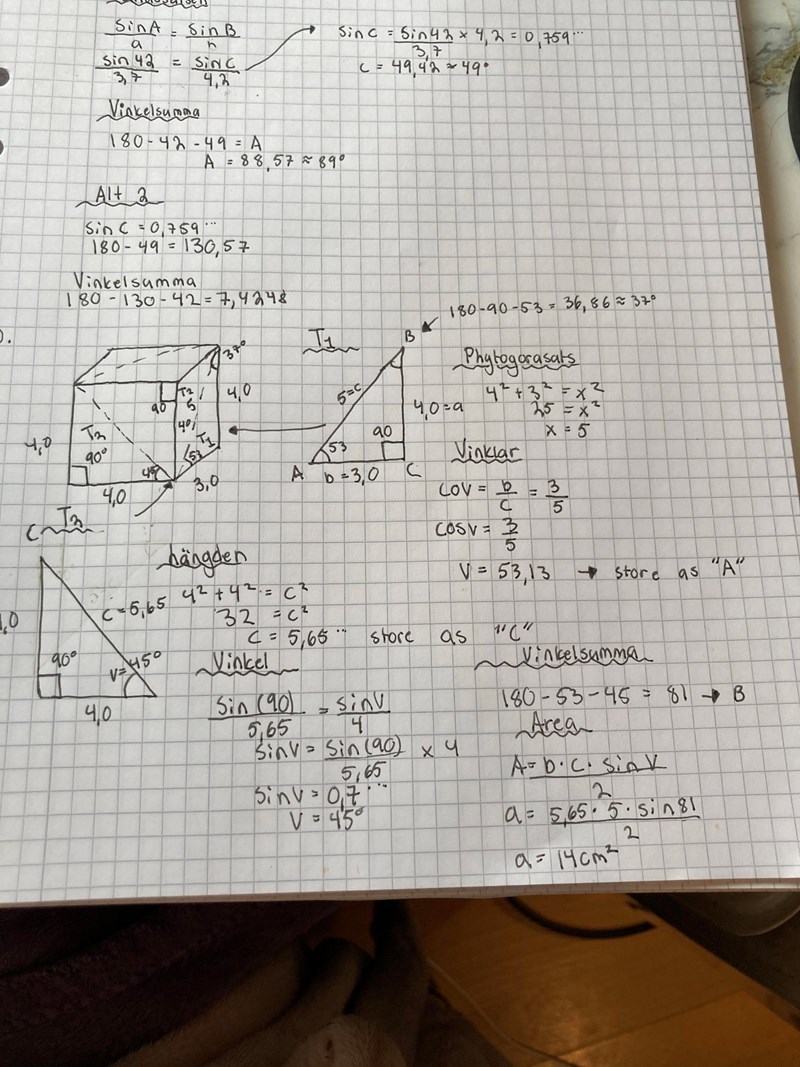 sinA/a = sinB/h
sin42/3,7 = sinC/4,2
sinC = sin42/3,7 × 4,2 = 0,759...
C = 49,42 ≈ 49°
Vinkelsumma
180 - 42 - 49 = A
A = 88,57 ≈ 89°
Alt 2
sinC = 0,759...
180 - 49 = 130,57
Vinkelsumma
180 - 130 - 42 = 7,4248
37°
T2
90
5
4,0
40
T1
53
T2
4,0
90°
45
4,0
3,0
T1
B
180-90-53 = 36,86 ≈ 37°
5=c
4,0=a
90
53
A
b=3,0
C
Phytogorasats
4² + 3² = x²
25 = x²
x = 5
Vinklar
COV = b/c = 3/5
COSV = 3/5
V = 53,13 → store as "A"
C
T2
C=5,65
90°
V=45°
4,0
längden
4² + 4² = c²
32 = c²
C = 5,65... store as "C"
Vinkel
Sin(90)/5,65 = sinV/4
sinV = sin(90)/5,65 × 4
sinV = 0,7...
V = 45°
Vinkelsumma
180 - 53 - 45 = 81 → B
Area
A = b·c·sinV/2
a = 5,65·5·sin81/2
a = 14cm²